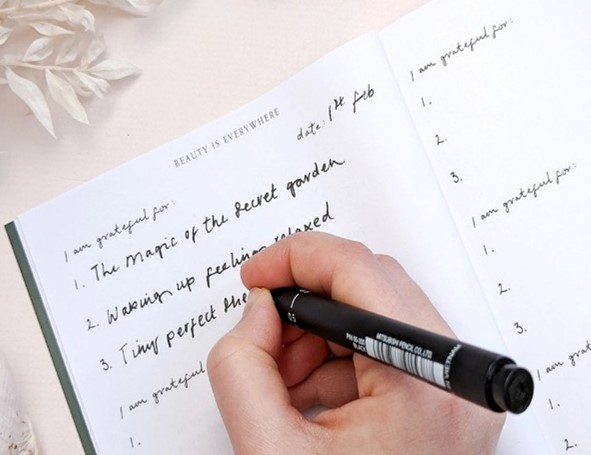 BEAUTY IS EVERYWHERE
date: 1st Feb
I am grateful for:
1. The Magic of the Secret garden
2. Waking up feeling relaxed
3. Tiny perfect
I am grateful
1.
I am grateful for:
1.
2.
3.
I am grateful for:
1.
2.
3.
I am grat
1.
2.
0.5
PIN 05-200
BLACK
MITSUBISHI PENCIL CO., LTD.